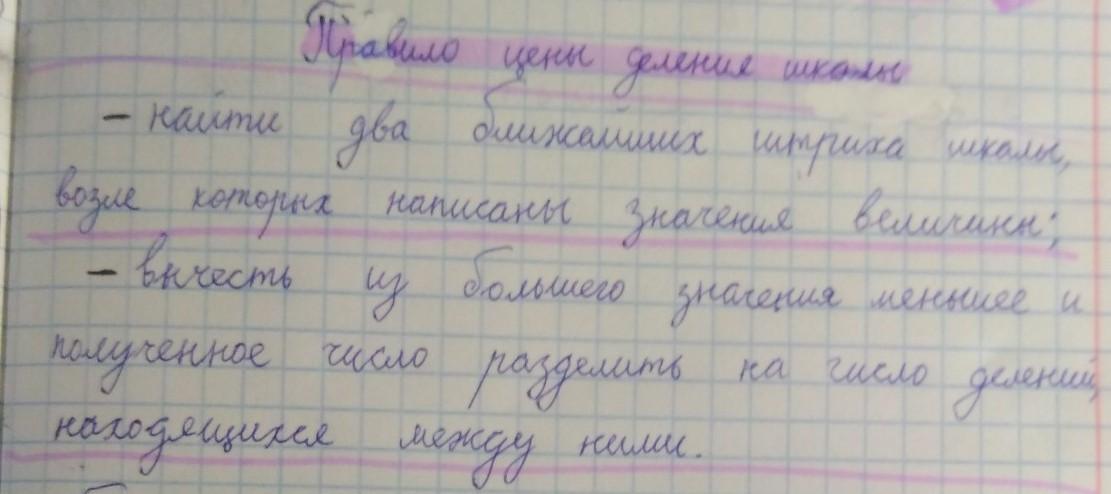 Правило цены деления шкалы
- найти два ближайших штриха шкалы,
возле которых написаны значения величины;
- вычесть из большего значения меньшее и
полученное число разделить на число делений,
находящихся между ними.